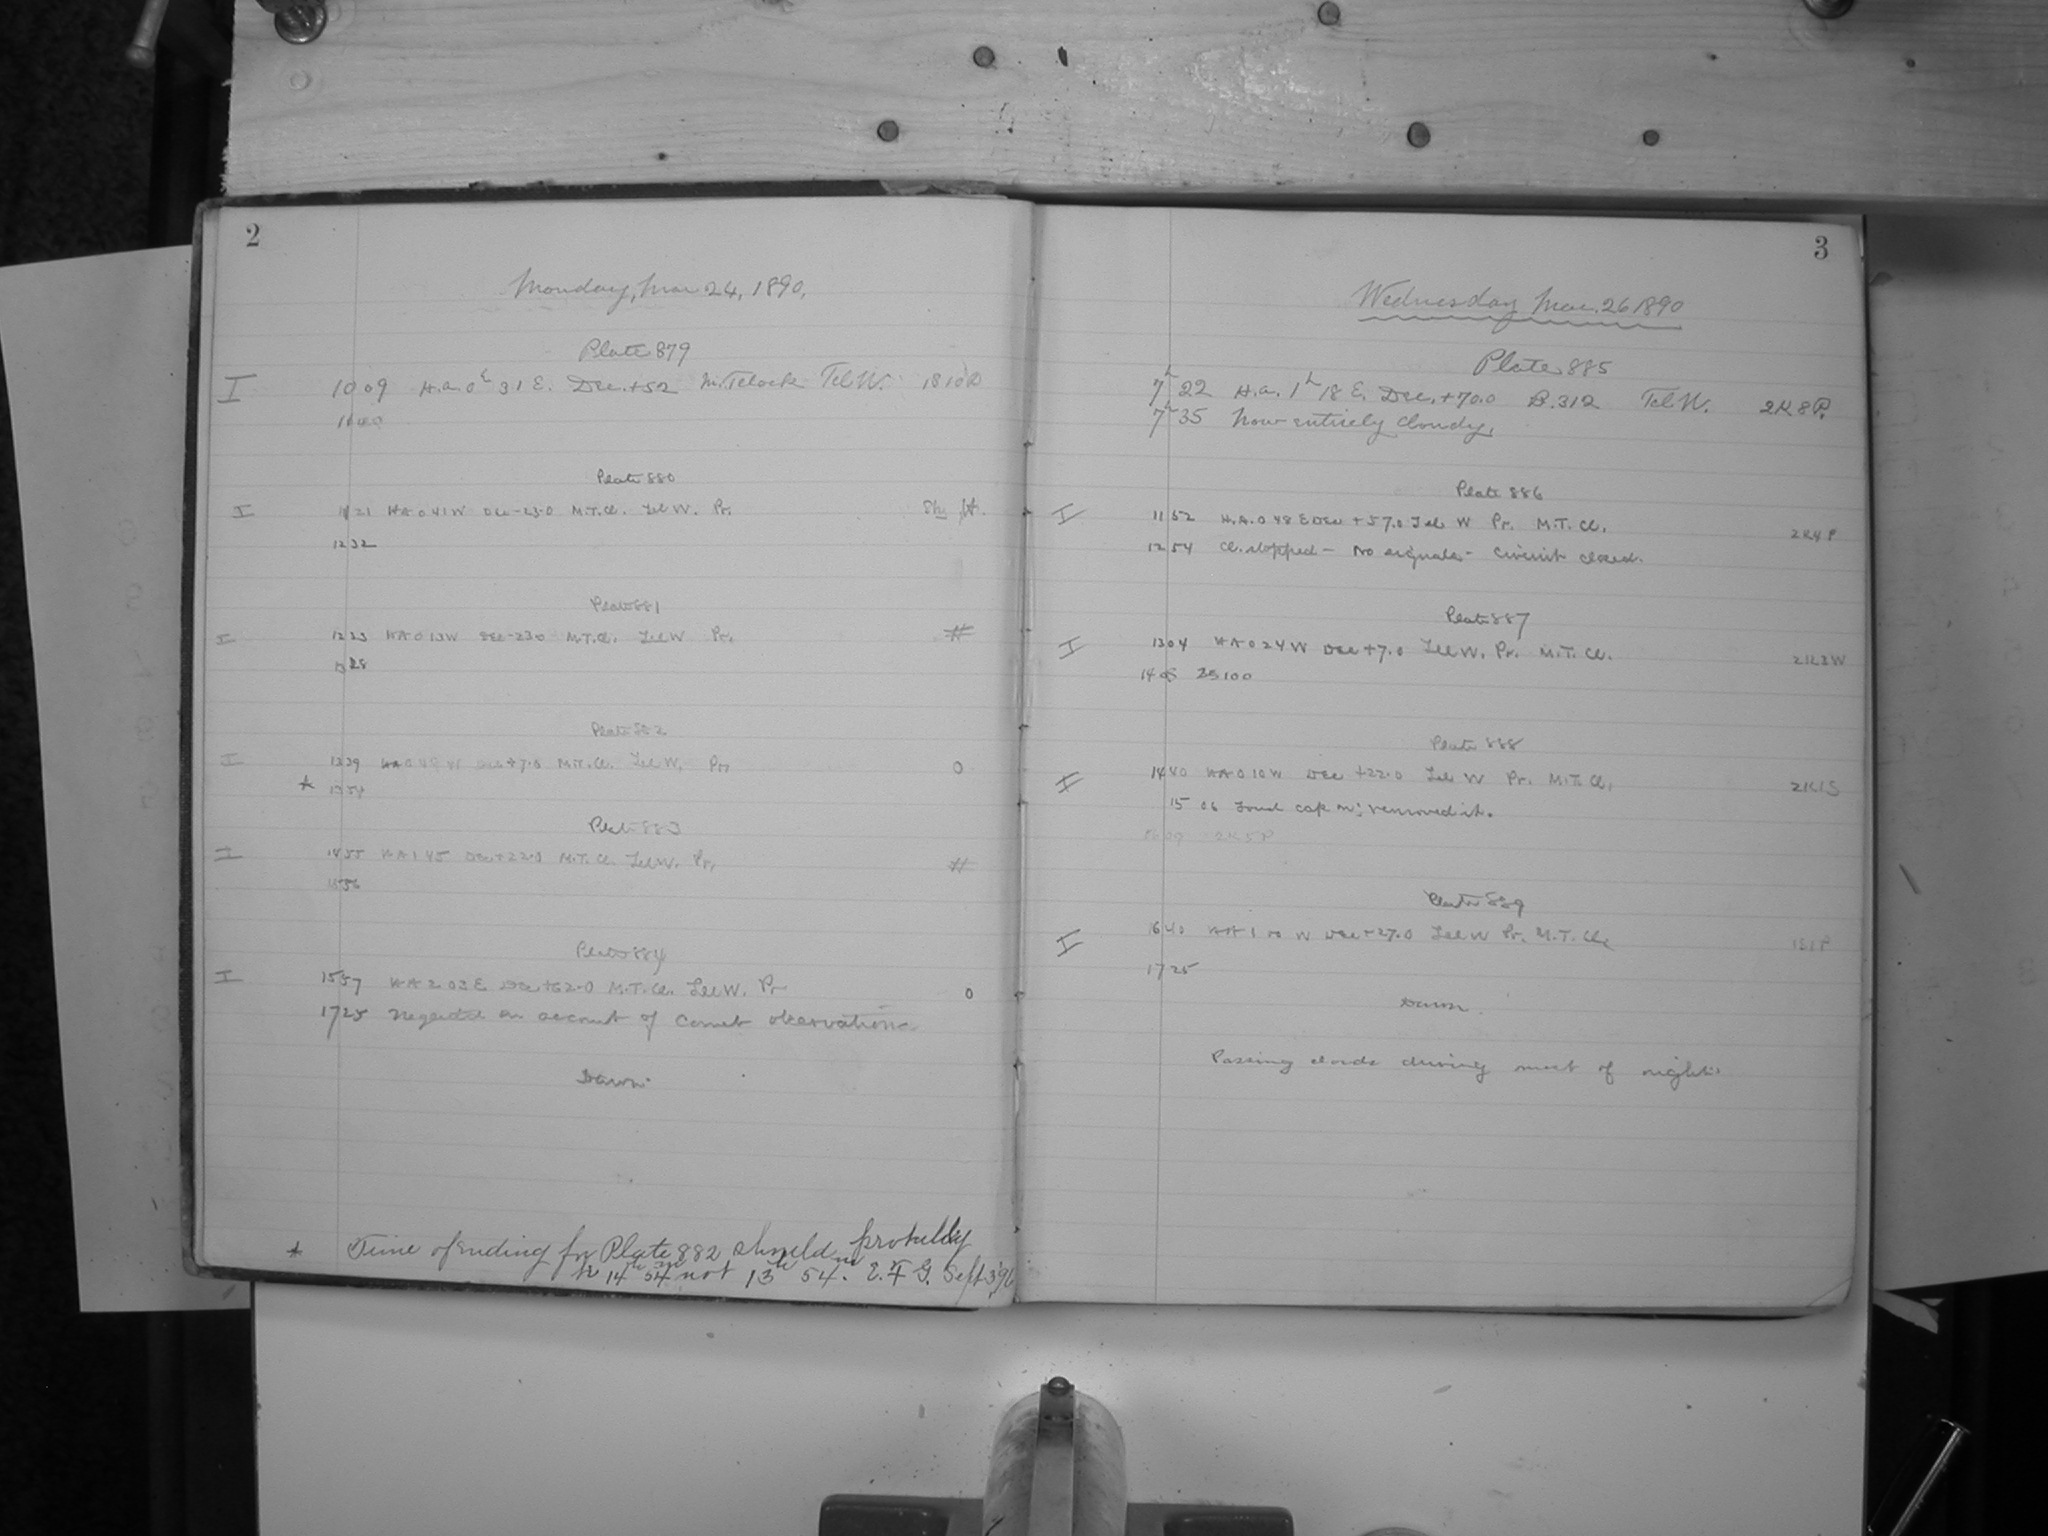 2
Monday, Mar 24, 1890.
Plate 879
I 10 09 H.a. 0h 31 E. Dec. +52 M.T.clock Tel.W.
Plate 880
I 11 21 HA 0 41 W Dec -23.0 M.T.Cl. Tel W. Pr.
12 32
Plate 881
I 12 33 HA 0 13 W Dec -23.0 M.T.Cl. Tel W Pr. #
13 38
Plate 882
I 13 39 HA Dec +7.0 M.T.Cl. Tel W. Pr. 0
* 13 54
Plate 883
I 14 55 HA 1 45 Dec +22.0 M.T. Cl. Tel W. Pr. #
15 56
Plate 884
I 15 57 HA 2 03 E Dec +62.0 M.T. Cl. Tel W. Pr 0
17 25 Neglected on account of Comet observations
Dawn.
* Time of ending for Plate 882 should probably
be 14h 54m not 13h 54m. E.F.G. Sept 3, '96
3
Wednesday Mar. 26 1890
Plate 885
7h 22 H.a. 1h 18 E. Dec. +70.0 B.312 Tel.W. 2K8P.
7h 35 Now entirely cloudy.
Plate 886
I 11 52 H.A. 0 48 E Dec +57.0 Tel W Pr. M.T. Cl. 2K4P
12 54 Cl. stopped - No signals - Circuit closed.
Plate 887
I 13 04 HA 0 24 W Dec +7.0 Tel W. Pr. M.T. Cl. 2K3W
14 05 25100
Plate 888
I 14 40 HA 0 10 W Dec +22.0 Tel W Pr. M.T. Cl. 2K1S
15 06 Found cap on; removed it.
16 09 2K5P
Plate 889
I 16 40 HA 1 10 W Dec +27.0 Tel W Pr. M.T. Cl.
17 25
Dawn.
Passing clouds during most of night.